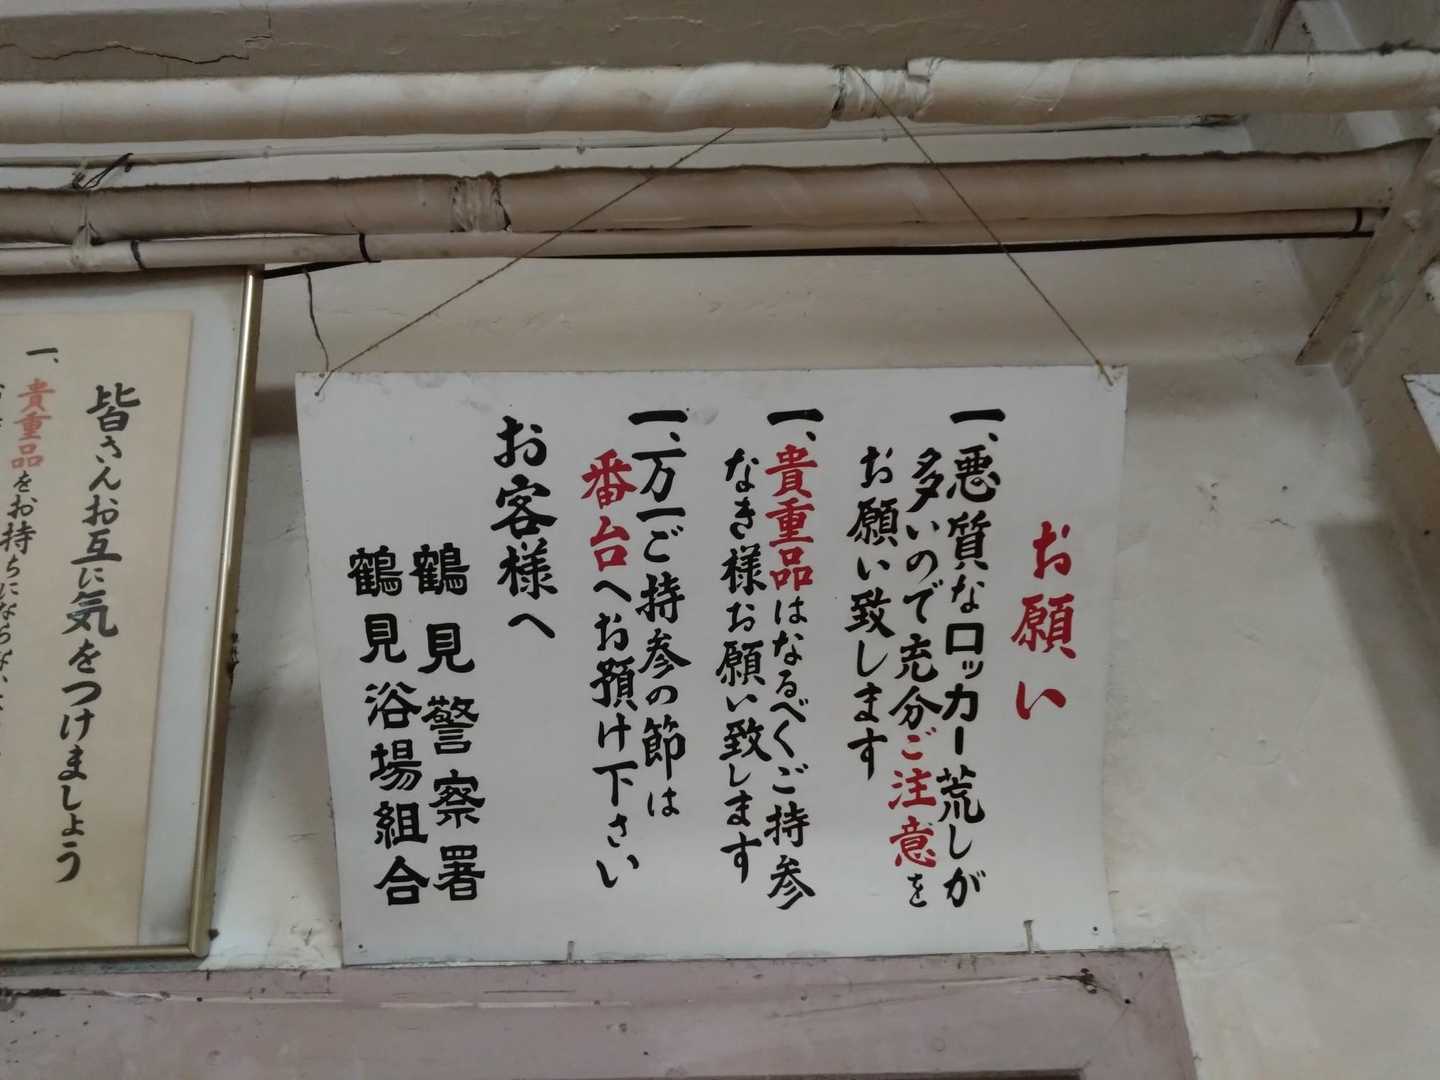 お願い
一、悪質なロッカー荒しが
多いので充分ご注意を
お願い致します
一、貴重品はなるべくご持参
なき様お願い致します
一、万一ご持参の節は
番台へお預け下さい
お客様へ
鶴見警察署
鶴見浴場組合
皆さんお互に気をつけましょう
一、貴重品をお持ちにならない